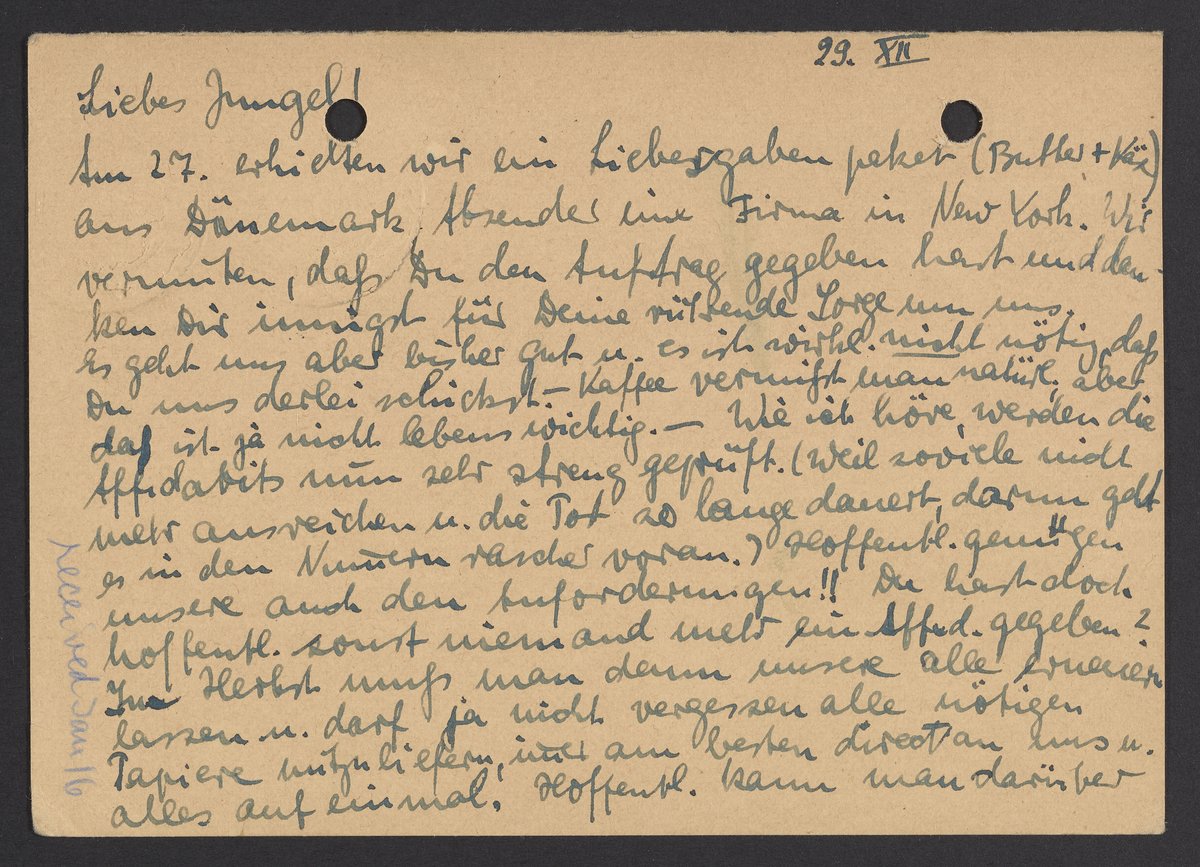 29. XII
Liebes Jungel!
Am 27. erhielten wir ein Liebesgaben paket (Butter + Käse)
aus Dänemark, Absender eine Firma in New York. Wir
vermuten, daß Du den Auftrag gegeben hast und dan-
ken Dir innigst für Deine rührende Sorge um uns.
Es geht uns aber bisher gut u. es ist wirkl. nicht nötig, daß
Du uns derlei schickst. – Kaffee vermißt man natürl., aber
daß ist ja nicht lebenswichtig. – Wie ich höre, werden die
Affidavits nun sehr streng geprüft. (Weil soviele nicht
mehr ausreichen u. die so lange dauert, darum geht
es in den Numern rascher voran.) Hoffentl. genügen
unsere auch den Anforderungen!! Du hast doch
hoffentl. sonst niemand mehr ein Affid. gegeben?
Im Herbst muß man dann unsere alle erneuern
lassen u. darf ja nicht vergessen alle nötigen
Papiere mitzuliefern, imer am besten direct an uns u.
alles auf einmal. Hoffentl. kann man darüber
received Jan 16